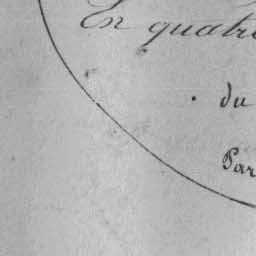 En quatre
du
Par